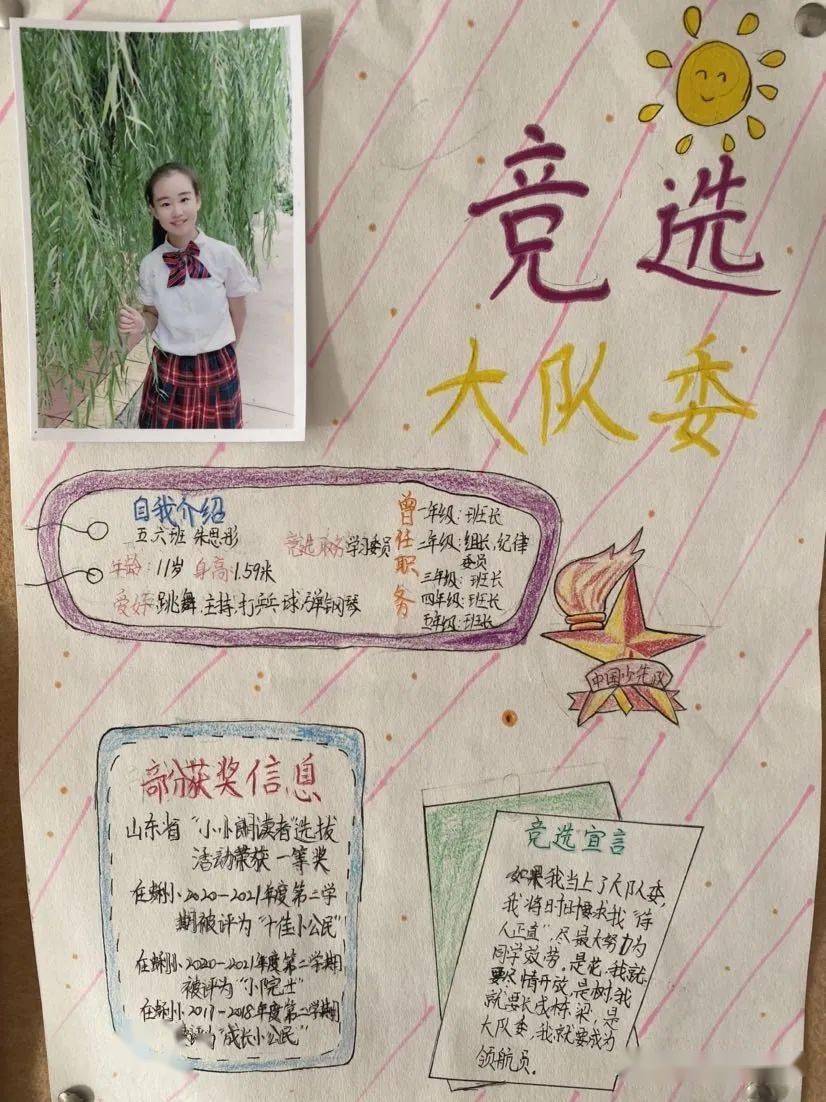 竞选
大队委
自我介绍
五.六班 朱思彤
竞选职务:学习委员
年龄:11岁 身高:1.59米
爱好:跳舞.主持.打乒乓球.弹钢琴
曾任职务
一年级:班长
二年级:组长,纪律
委员
三年级:班长
四年级:班长
五年级:班长
中国少先队
部分获奖信息
山东省“小小朗读者”选拔
活动荣获一等奖
2020-2021年度第二学
期被评为“十佳小公民”
2020-2021年度第二学期
被评为“小院士”
2017-2018年度第二学期
“成长小公民”
竞选宣言
如果我当上了大队委,
我将时时要求我“待
人正直”,尽最大努力为
同学效劳,是花,我就
要尽情开放,是树,我
就要长成栋梁,是
大队委,我就要成为
领航员.